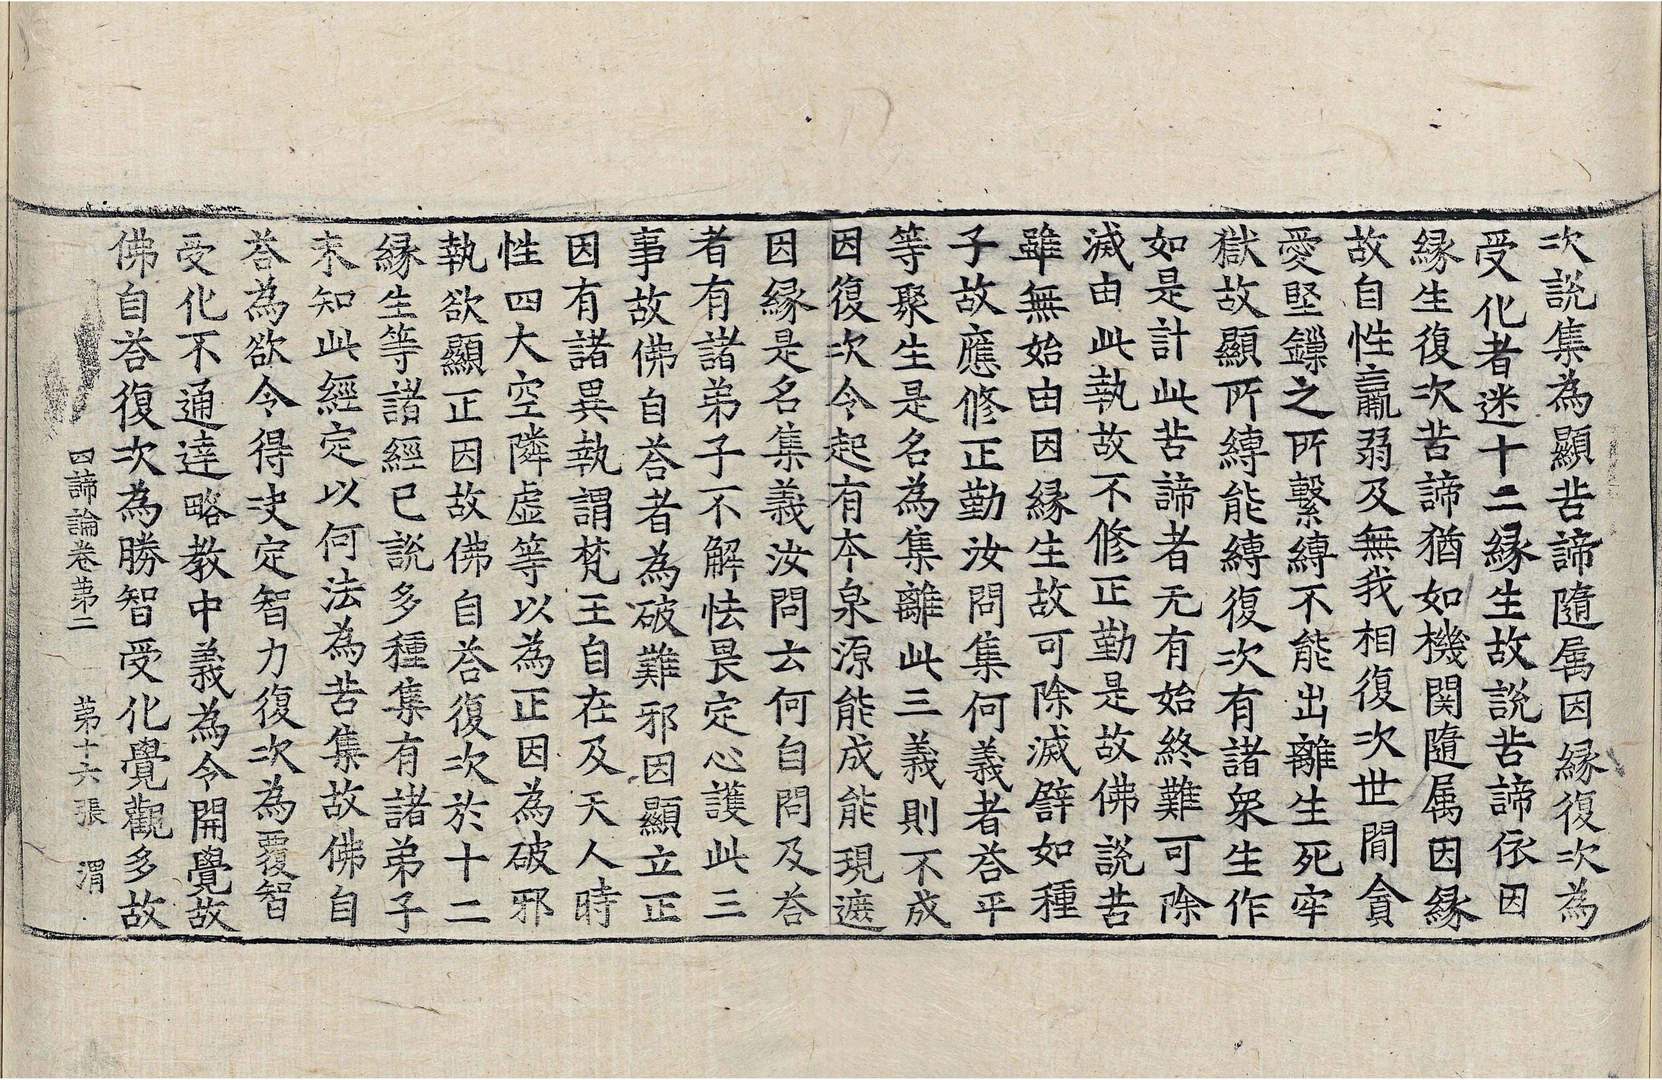 次說集為顯苦諦隨属因縁復次為
受化者迷十二縁生故說苦諦依因
縁生復次苦諦猶如機関隨属因縁
故自性羸弱及無我相復次世間貪
愛堅鏁之所繫縛不能出離生死牢
獄故顯所縛能縛復次有諸衆生作
如是計此苦諦者无有始終難可除
滅由此執故不修正勤是故佛說苦
雖無始由因縁生故可除滅譬如種
子故應修正勤汝問集何義者荅平
等聚生是名為集離此三義則不成
因復次令起有本泉源能成能現遮
因縁是名集義汝問云何自問及荅
者有諸弟子不解怯畏定心護此三
事故佛自荅者為破難邪因顯立正
因有諸異執謂梵王自在及天人時
性四大空隣虚等以為正因為破邪
執欲顯正因故佛自荅復次於十二
縁生等諸經已說多種集有諸弟子
未知此經定以何法為苦集故佛自
荅為欲令得决定智力復次為覆智
受化不通達略教中義為令開覺故
佛自荅復次為勝智受化覺觀多故
四諦論卷苐二 苐十六張 渭